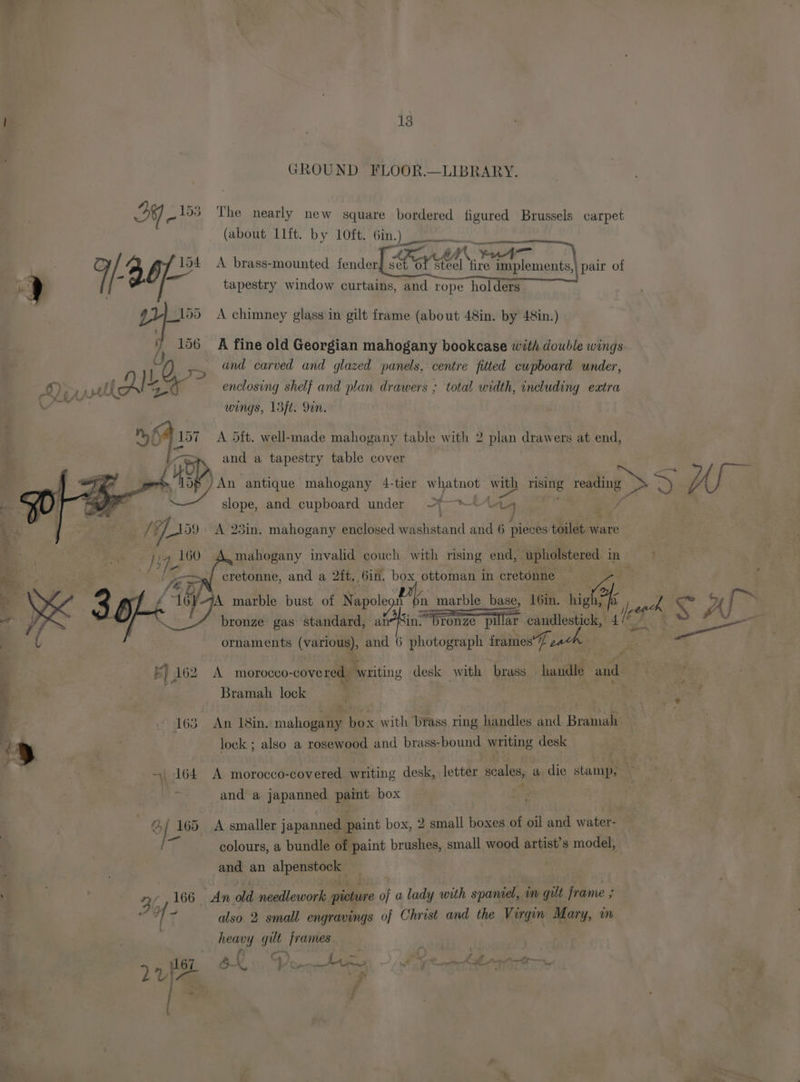 13
GROUND FLOOR.—LIBRARY.
153 The nearly new square bordered figured Brussels carpet
(about 11ft. by 10ft. 6in.)
154 A brass-mounted fender, set of steel fire implements, pair of
tapestry window curtains, and rope holders
155 A chimney glass in gilt frame (about 48in. by 48in.)
156 A fine old Georgian mahogany bookcase with double wings
and carved and glazed panels, centre fitted cupboard under,
enclosing shelf and plan drawers ; total width, including extra
wings, 13ft. 9in.
157 A 5ft. well-made mahogany table with 2 plan drawers at end,
and a tapestry table cover
158 An antique mahogany 4-tier whatnot with rising reading > S W
slope, and cupboard under
159 A 23in. mahogany enclosed washstand and 6 pieces toilet ware
160 A mahogany invalid couch with rising end, upholstered in
cretonne, and a 2ft. 6in. box ottoman in cretonne
30/- 161 A marble bust of Napoleon on marble base, 16in. high, each S W
bronze gas standard, an in. bronze pillar candlestick, 4
ornaments (various), and 6 photograph frames each
162 A morocco-covered writing desk with brass handle and
Bramah lock
163 An 18in. mahogany box with brass ring handles and Bramah
lock ; also a rosewood and brass-bound writing desk
164 A morocco-covered writing desk, letter scales, a die stamp,
and a japanned paint box
165 A smaller japanned paint box, 2 small boxes of oil and water-
colours, a bundle of paint brushes, small wood artist's model,
and an alpenstock
166 An old needlework picture of a lady with spaniel, in gilt frame ;
also 2 small engravings of Christ and the Virgin Mary, in
heavy gilt frames
167